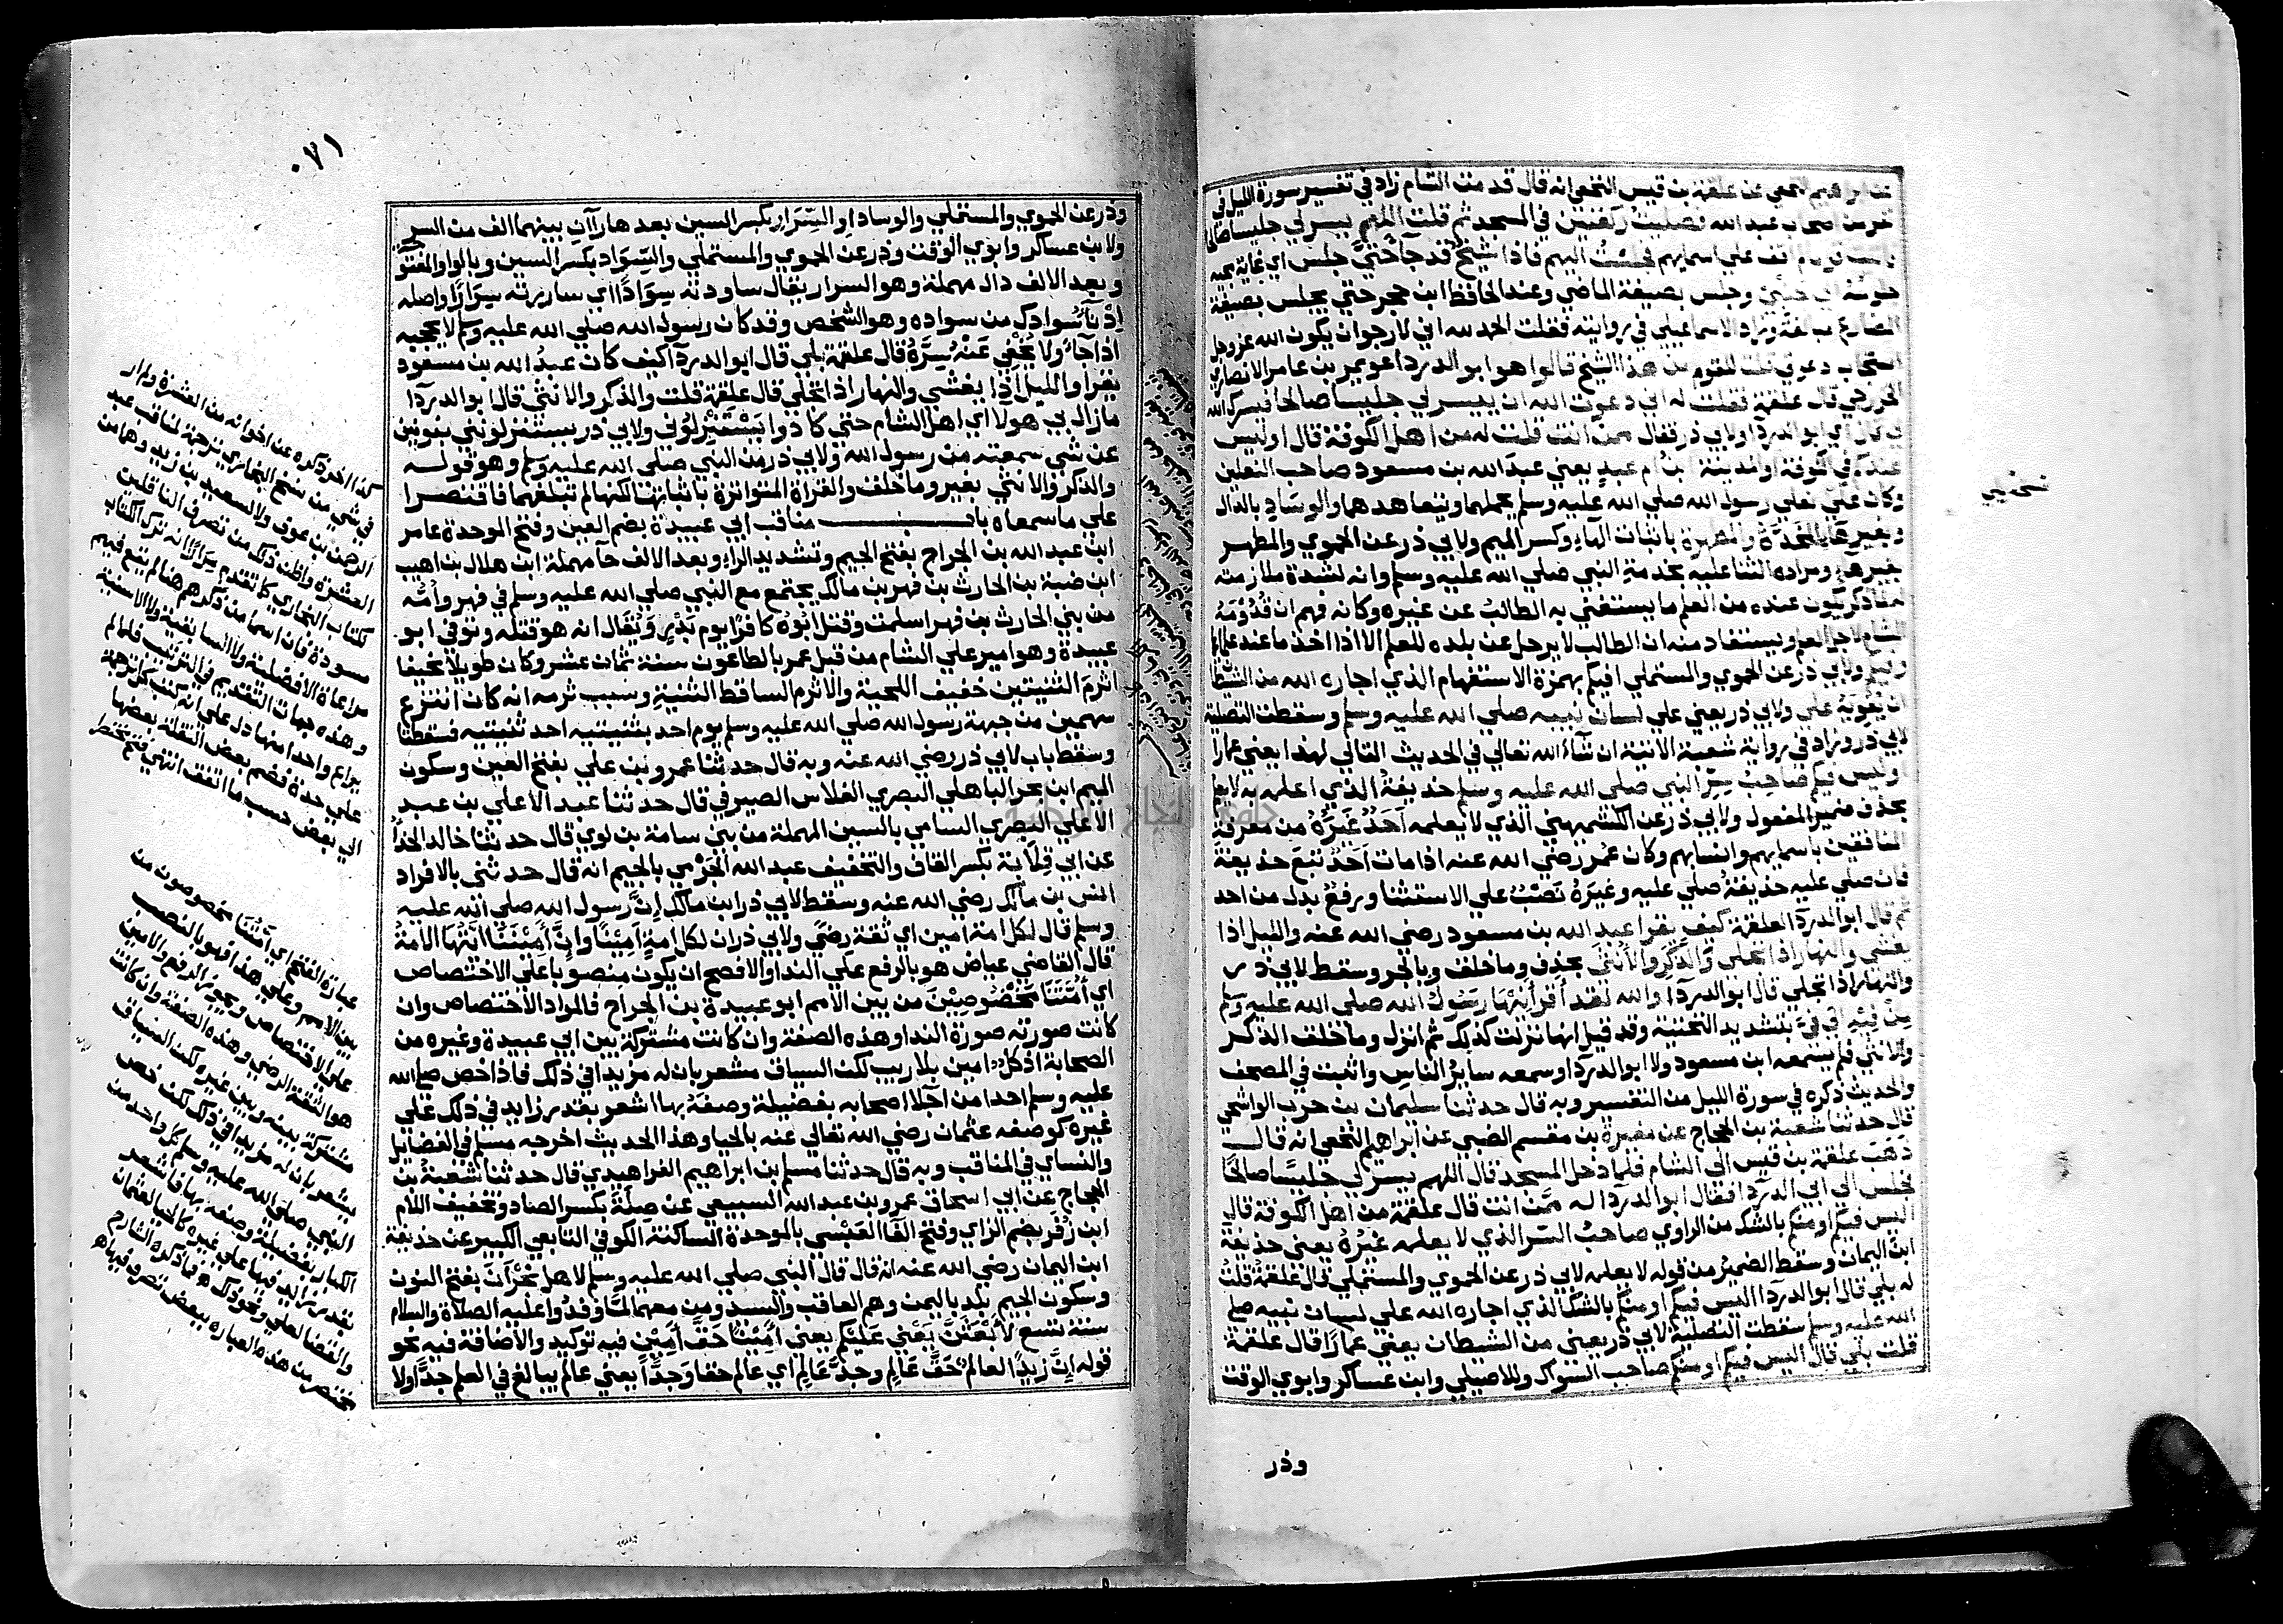 عن ابراهيم النخعي عن علقمة بن قيس النخعي انه قال قدمت الشام زاد في تفسير سورة الليل في
نفر من اصحاب عبد الله فصليت ركعتين في المسجد ثم قلت اللهم يسر لي جليسا صالحا
فاتيت قوما فجلست اليهم فاذا شيخ قد جاء حتي جلس اي غاية مجيه
جلوسه الي جنبي وجلس بصيغة الماضي وعند الحافظ ابن حجر حتي يجلس بصيغة
المضارع مبالغة وزاد الاسماعيلي في روايته فقلت الحمد لله اني لارجو ان يكون الله عز وجل
استجاب دعوتي قلت للقوم من هذا الشيخ قالوا هو ابو الدرداء عويمر بن عامر الانصاري
الخزرجي قال علقمة فقلت له اني دعوت الله ان ييسر لي جليسا صالحا فيسرك الله
لي قال اي ابو الدرداء ولابي ذر فقال ممن انت قلت له من اهل الكوفة قال اوليس
عندكم في الكوفة او المدينة ابن ام عبد يعني عبد الله بن مسعود صاحب النعلين
وكان علي نعلي رسول الله صلي الله عليه وسلم يحملهما ويتعاهدهما والوساد بالدال
وبغير هاء المخدة والمطهرة باثبات الهاء وكسر الميم ولابي ذر عن الحموي والمطهر
بغير هاء ومراده الثنا عليه بخدمة النبي صلي الله عليه وسلم وانه لشدة ملازمته
لما ذكر يكون عنده من العلم ما يستغني به الطالب عن غيره وكانه فهم ان قدومه
الشام لاجل العلم ويستفاد منه ان الطالب لا يرحل عن بلده للعلم الا اذا اخذ ما عند علمائها
وفيكم ولابي ذر عن الحموي والمستملي افيكم بهمزة الاستفهام الذي اجاره الله من الشيطان
ان يغويه علي ولابي ذر يعني علي لسان نبيه صلي الله عليه وسلم وسقطت التصلية
لابي ذر وزاد في رواية شعبة الاتية ان شاء الله تعالي في الحديث التالي لهذا يعني عمارا
اوليس فيكم صاحب سر النبي صلي الله عليه وسلم حذيفة الذي اعلمه به لا يعلم
بحذف ضمير المفعول ولابي ذر عن الكشميهني الذي لا يعلمه احد غيره من معرفة
المنافقين باسمايهم وانسابهم وكان عمر رضي الله عنه اذا مات احد تبع حذيفة
فان صلي عليه حذيفة صلي عليه وغيره نصب علي الاستثنا ورفع بدل من احد
ثم قال ابو الدرداء لعلقمة كيف يقرا عبد الله بن مسعود رضي الله عنه والليل اذا
يغشي والنهار اذا تجلي والذكر والانثي بحذف وما خلف وبالجر وسقط لابي ذر
والنهار اذا تجلي قال ابو الدرداء والله لقد اقرأنيها رسول الله صلي الله عليه وسلم
من فيه الي في بتشديد التحتية وقد قيل انها نزلت كذلك ثم انزل وما خلف الذكر
والانثي فلم يسمعه ابن مسعود ولا ابو الدرداء وسمعه سائر الناس واثبت في المصحف
والحديث ذكره في سورة الليل من التفسير وبه قال حدثنا سليمان بن حرب الواشحي
قال حدثنا شعبة بن الحجاج عن مغيرة بن مقسم الضبي عن ابراهيم النخعي انه قال
ذهب علقمة بن قيس الي الشام فلما دخل المسجد قال اللهم يسر لي جليسا صالحا
فجلس الي ابي الدرداء فقال ابو الدرداء له ممن انت قال علقمة من اهل الكوفة قال
اليس فيكم او منكم بالشك من الراوي صاحب السر الذي لا يعلمه غيره يعني حذيفة
ابن اليمان وسقط الضمير من قوله لا يعلمه لابي ذر عن الحموي والمستملي قال علقمة قلت
له بلي قال ابو الدرداء اليس فيكم او منكم بالشك الذي اجاره الله علي لسان نبيه صلي
الله عليه وسلم سقطت التصلية لابي ذر يعني من الشيطان يعني عمارا قال علقمة
قلت بلي قال اليس فيكم او منكم صاحب السواك وللاصيلي وابن عساكر وابوي الوقت
وذر
٠٧١
وذر عن الحموي والمستملي والوساد او السرار بكسر السين بعدها راآن بينهما الف من السر
ولابن عساكر وابوي الوقت وذر عن الحموي والمستملي والسواد بكسر السين وبالواو المفتوحة
وبعد الالف دال مهملة وهو السرار يقال ساودته سوادا اي ساررته سرارا واصله
ادنآء سوادك من سواده وهو الشخص وقد كان رسول الله صلي الله عليه وسلم لا يحجبه
اذا جاء ولا يخفي عنه سره قال علقمة بلي قال ابو الدرداء كيف كان عبد الله بن مسعود
يقرا والليل اذا يغشي والنهار اذا تجلي قال علقمة قلت والذكر والانثي قال ابو الدرداء
ما زال بي هولاء اي اهل الشام حتي كادوا يستنزلوني ولابي ذر يستنزلونني بنونين
عن شي سمعته من رسول الله ولابي ذر من النبي صلي الله عليه وسلم وهو قوله
والذكر والانثي بغير وما خلف والقراة المتواترة باثباتها لكنها لم تبلغهما فاقتصرا
علي ما سمعاه باب مناقب ابي عبيدة بضم العين وفتح الموحدة عامر
ابن عبد الله بن الجراح بفتح الجيم وتشديد الراء وبعد الالف حا مهملة ابن هلال بن اهيب
ابن ضبة بن الحارث بن فهر بن مالك يجتمع مع النبي صلي الله عليه وسلم في فهر وامه
من بني الحارث بن فهر اسلمت وقتل ابوه كافرا يوم بدر ويقال انه هو قتله وتوفي ابو
عبيدة وهو امير علي الشام من قبل عمر بالطاعون سنة ثمان عشر وكان طويلا نحيفا
اثرم الثنيتين خفيف اللحية والاثرم الساقط الثنية وسبب ثرمه انه كان انتزع
سهمين من جبهة رسول الله صلي الله عليه وسلم يوم احد بثنيتيه احد ثنيتيه فسقطتا
وسقط باب لابي ذر رضي الله عنه وبه قال حدثنا عمرو بن علي بفتح العين وسكون
الميم ابن بحر الباهلي البصري الفلاس الصيرفي قال حدثنا عبد الاعلي بن عبد
الاعلي البصري السامي بالسين المهملة من بني سامة بن لوي قال حدثنا خالد الحذاء
عن ابي قلابة بكسر القاف والتخفيف عبد الله الجرمي بالجيم انه قال حدثني بالافراد
انس بن مالك رضي الله عنه وسقط لابي ذر ابن مالك ان رسول الله صلي الله عليه
وسلم قال لكل امة امين اي ثقة رضي ولابي ذر ان لكل امة امينا وان اميننا ايتها الامة
قال القاضي عياض هو بالرفع علي الندا والافصح ان يكون منصوبا علي الاختصاص
اي امتنا مخصوصين من بين الامم ابو عبيدة بن الجراح فالمراد الاختصاص وان
كانت صورته صورة الندا وهذه الصفة وان كانت مشتركة بين ابي عبيدة وغيره من
الصحابة اذ كل امين بلا ريب لكن السياق مشعر بان له مزيدا في ذلك فاذا خص صلي الله
عليه وسلم احدا من اجلاء اصحابه بفضيلة وصفة بها اشعر بقدر زايد في ذلك علي
غيره كوصفه عثمان رضي الله تعالي عنه بالحيا وهذا الحديث اخرجه مسلم في الفضايل
والنساي في المناقب وبه قال حدثنا مسلم بن ابراهيم الفراهيدي قال حدثنا شعبة بن
الحجاج عن ابي اسحاق عمرو بن عبد الله السبيعي عن صلة بكسر الصاد وتخفيف اللام
ابن زفر بضم الزاي وفتح الفا العبسي بالموحدة الساكنة الكوفي التابعي الكبير عن حذيفة
ابن اليمان رضي الله عنه انه قال قال النبي صلي الله عليه وسلم لاهل نجران بفتح النون
وسكون الجيم بلد باليمن وهم العاقب والسيد ومن معهما لما وفدوا عليه الصلاة والسلام
سنة تسع لابعثن يعني عليكم يعني امينا حق امين فيه توكيد والاضافة فيه نحو
قوله ان زيدا لعالم حق عالم وجد عالم اي عالم حقا وجدا يعني عالم يبالغ في العلم جدا ولا
كذا اخر ذكره عن اخوانه من العشرة ولم ار
في شي من نسخ البخاري ترجمة لمناقب عبد
الرحمن بن عوف ولا لسعيد بن زيد وهما من
العشرة واظن ذلك من تصرف الناقلين
لكتاب البخاري كما تقدم مرارا انه ترك الكتاب
مسودة فان اسما من ذكرهم هنا لم يقع فيهم
مراعاة الافضلية ولا السابقية ولا الاسنية
وهذه جهات التقديم في الترتيب فلما لم
يراع واحدا منها دل علي انه كتب كل ترجمة
علي حدة فضم بعض النقلة بعضها
الي بعض حسب ما اتفق انتهي فتح مختصرا
عبارة الفتح اي امتنا مخصوصون من
بين الامم وعلي هذا فهو بالنصب
علي الاختصاص ويجوز الرفع والامين
هو الثقة الرضي وهذه الصفة وان كانت
مشتركة بينه وبين غيره لكن السياق
يشعر بان له مزيدا في ذلك لكن خص
النبي صلي الله عليه وسلم كل واحد من
الكبار بفضيلة وصفه بها فاشعر
بقدر زايد فيها علي غيره كالحيا لعثمان
والقضا لعلي ونحو ذلك فما ذكره الشارح
مختصر من هذه العبارة ببعض تصرف فيها